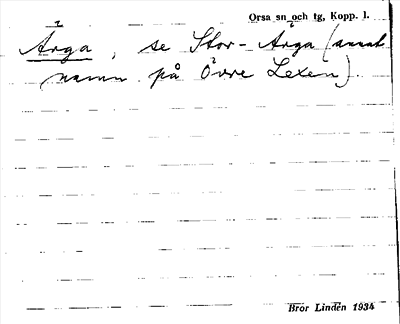 Orsa sn och tg, Kopp. l.
Årga, se Stor-Årga (annat
namn på Övre Lexen).
Bror Lindén 1934